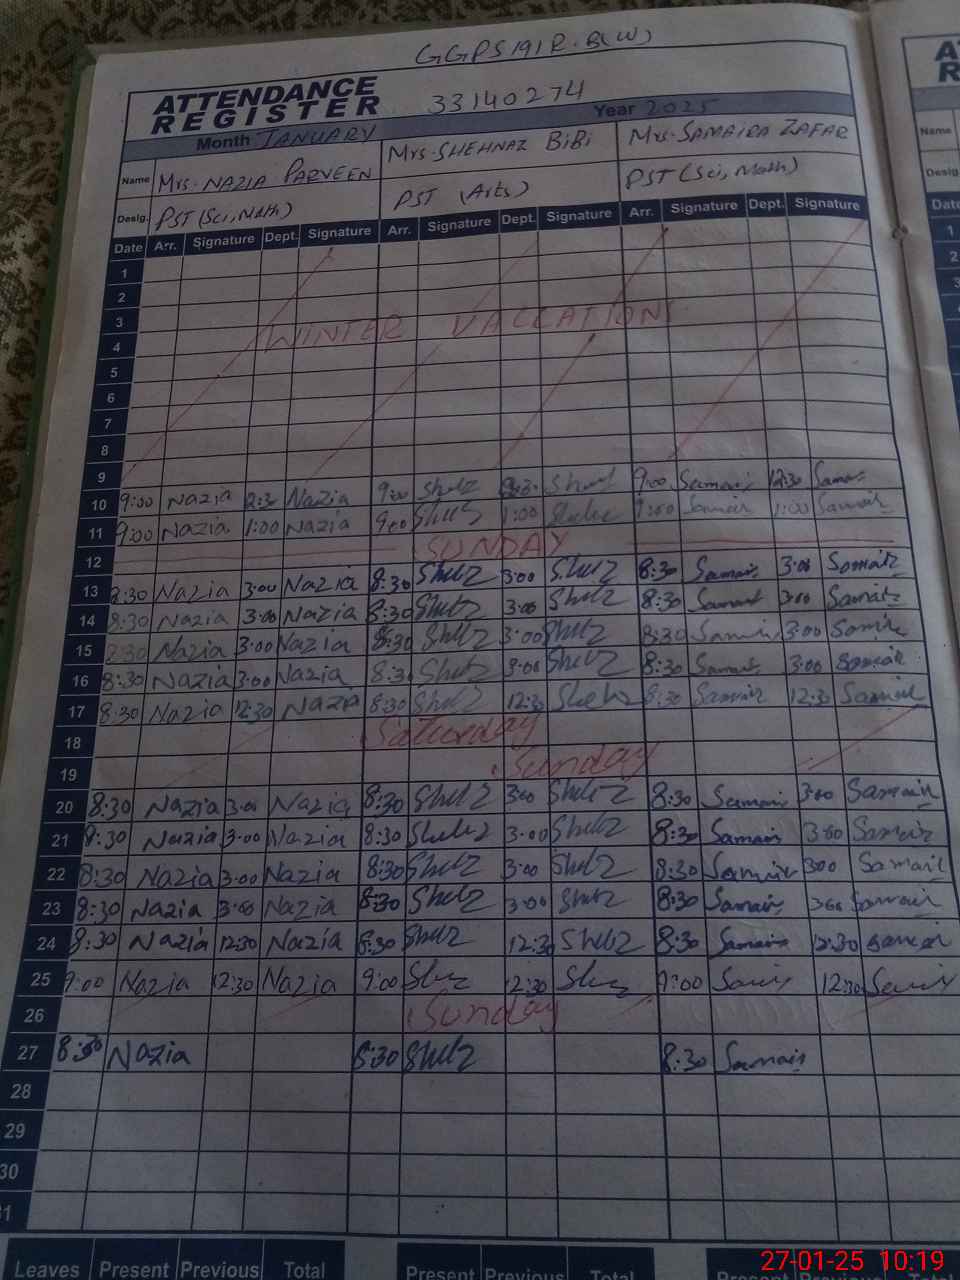 GGPS 191 R.B(W)
ATTENDANCE REGISTER
33140274
Month JANUARY Year 2025
Name Mrs. NAZIA PARVEEN Mrs. SHEHNAZ BIBI Mrs. SAMAIRA ZAFAR
Desig. PST (Sci, Math) PST (Arts) PST (Sci, Math)
Date Arr. Signature Dept. Signature Arr. Signature Dept. Signature Arr. Signature Dept. Signature
1
2
3 WINTER VACCATION
4
5
6
7
8
9
10 9:00 Nazia 2:30 Nazia 9:00 Shelz Samair 12:30
11 9:00 Nazia 1:00 Nazia 9:00 Shelz 1:00 Samair 1:00 Samair
12 SUNDAY
13 8:30 Nazia 3:00 Nazia 8:30 Shelz 3:00 Shelz 8:30 Samair 3:00 Samair
14 8:30 Nazia 3:00 Nazia 8:30 Shelz 3:00 Shelz 8:30 Samair 3:00 Samair
15 8:30 Nazia 3:00 Nazia 8:30 Shelz 3:00 Shelz 8:30 Samair 3:00 Samair
16 8:30 Nazia 3:00 Nazia 8:30 Shelz 3:00 Shelz 8:30 Samair 3:00 Samair
17 8:30 Nazia 12:30 Nazia 8:30 Shelz 12:30 8:30 Samair 12:30 Samair
18 Saturday
19 Sunday
20 8:30 Nazia 3:00 Nazia 8:30 Shelz 3:00 Shelz 8:30 Samair 3:00 Samair
21 8:30 Nazia 3:00 Nazia 8:30 Shelz 3:00 Shelz 8:30 Samair 3:00 Samair
22 8:30 Nazia 3:00 Nazia 8:30 Shelz 3:00 Shelz 8:30 Samair 3:00 Samair
23 8:30 Nazia 3:00 Nazia 8:30 Shelz 3:00 Shelz 8:30 Samair 3:00 Samair
24 8:30 Nazia 12:30 Nazia 8:30 Shelz 12:30 Shelz 8:30 Samair 12:30 Samair
25 9:00 Nazia 12:30 Nazia 9:00 12:30 9:00 12:30
26 Sunday
27 8:30 Nazia 8:30 Shelz 8:30 Samair
28
29
30
31
Leaves Present Previous Total Present Previous Total Present
Name
Date
1
2
27-01-25 10:19